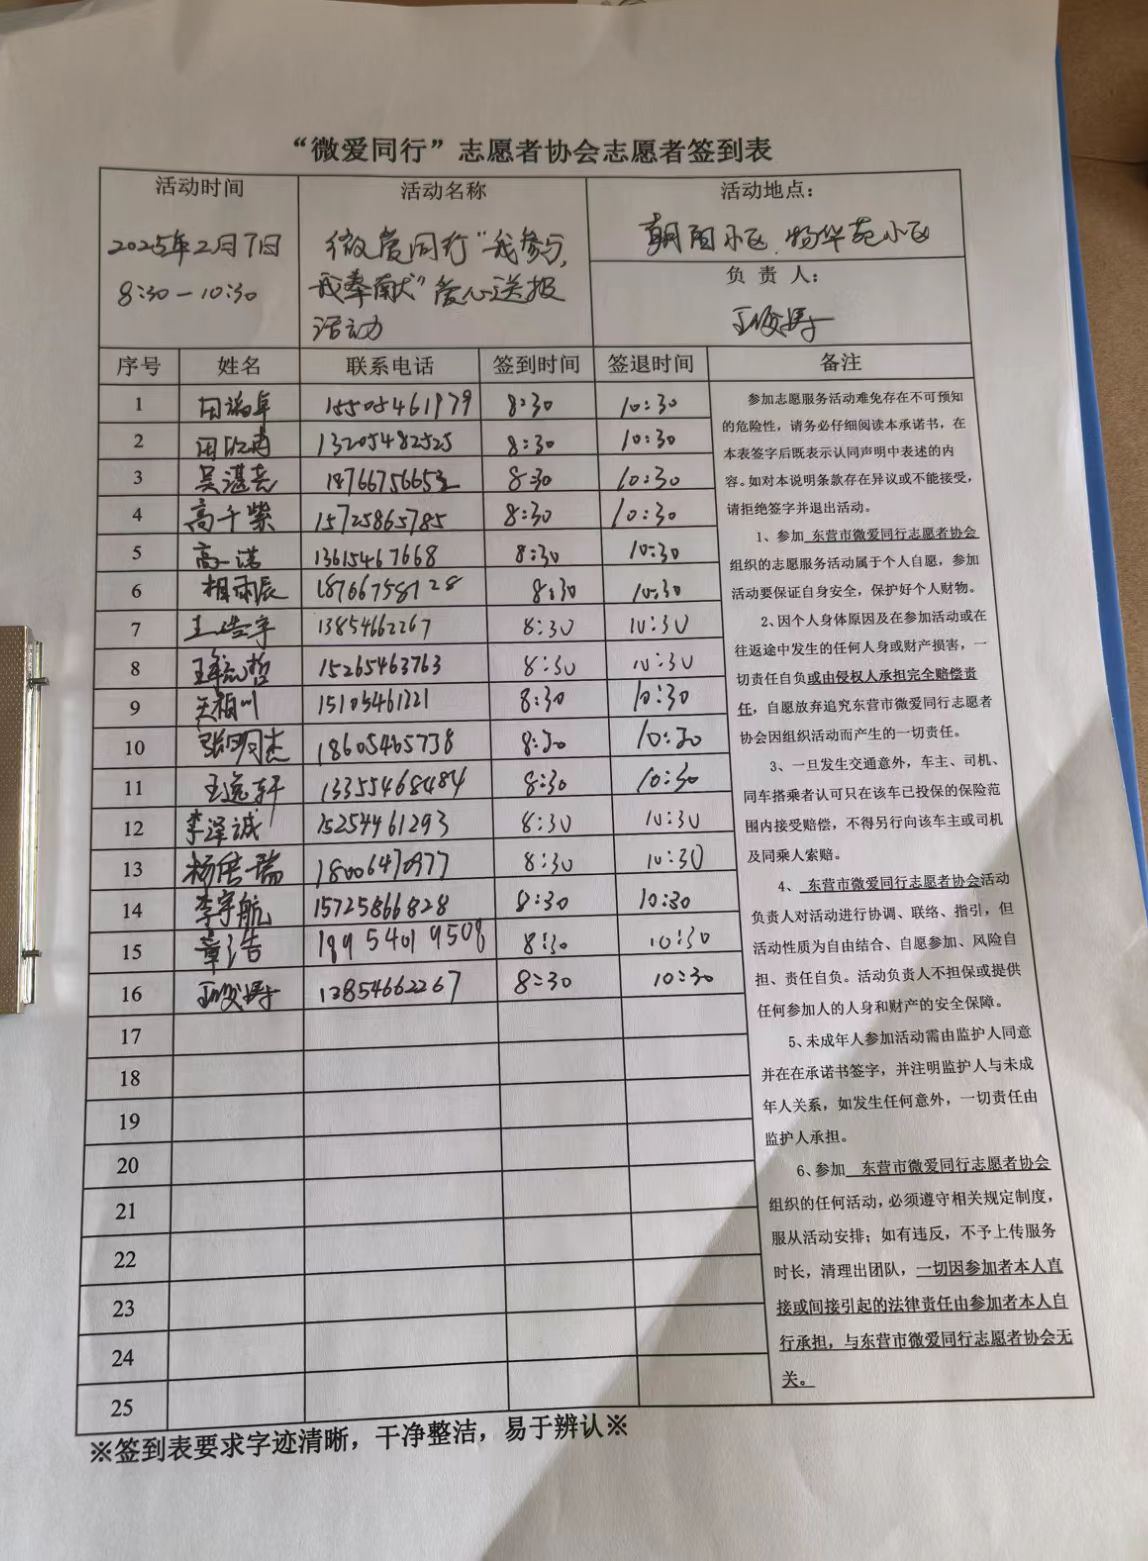 “微爱同行”志愿者协会志愿者签到表
活动时间 活动名称 活动地点：
2025年2月7日
8:30-10:30
微爱同行“我参与，
我奉献”爱心送报
活动
朝阳小区、物华苑小区
负责人：
王俊涛
序号 姓名 联系电话 签到时间 签退时间 备注
1 15505461979 8:30 10:30
2 13205482525 8:30 10:30
3 吴湛尧 18766756652 8:30 10:30
4 高千紫 15725865785 8:30 10:30
5 高一诺 13615467668 8:30 10:30
6 相雨辰 18766758128 8:30 10:30
7 王浩宇 13854662267 8:30 10:30
8 15265463763 8:30 10:30
9 关柏川 15105461221 8:30 10:30
10 张明杰 18605465738 8:30 10:30
11 王逸轩 13355468484 8:30 10:30
12 李泽诚 15254461293 8:30 10:30
13 杨传瑞 18006470977 8:30 10:30
14 李宇航 15725866828 8:30 10:30
15 章浩 18954019508 8:30 10:30
16 王俊涛 13854662267 8:30 10:30
17
18
19
20
21
22
23
24
25
参加志愿服务活动难免存在不可预知
的危险性，请务必仔细阅读本承诺书，在
本表签字后既表示认同声明中表述的内
容。如对本说明条款存在异议或不能接受，
请拒绝签字并退出活动。
1、参加 东营市微爱同行志愿者协会
组织的志愿服务活动属于个人自愿，参加
活动要保证自身安全，保护好个人财物。
2、因个人身体原因及在参加活动或在
往返途中发生的任何人身或财产损害，一
切责任自负或由侵权人承担完全赔偿责
任，自愿放弃追究东营市微爱同行志愿者
协会因组织活动而产生的一切责任。
3、一旦发生交通意外，车主、司机、
同车搭乘者认可只在该车已投保的保险范
围内接受赔偿，不得另行向该车主或司机
及同乘人索赔。
4、 东营市微爱同行志愿者协会活动
负责人对活动进行协调、联络、指引，但
活动性质为自由结合、自愿参加、风险自
担、责任自负。活动负责人不担保或提供
任何参加人的人身和财产的安全保障。
5、未成年人参加活动需由监护人同意
并在在承诺书签字，并注明监护人与未成
年人关系，如发生任何意外，一切责任由
监护人承担。
6、参加 东营市微爱同行志愿者协会
组织的任何活动，必须遵守相关规定制度，
服从活动安排；如有违反，不予上传服务
时长，清理出团队，一切因参加者本人直
接或间接引起的法律责任由参加者本人自
行承担，与东营市微爱同行志愿者协会无
关。
※签到表要求字迹清晰，干净整洁，易于辨认※